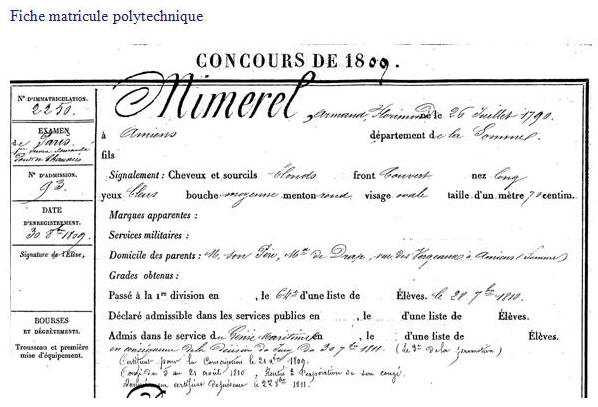 Fiche matricule polytechnique
CONCOURS DE 1809.
N° D'IMMATRICULATION.
2250.
EXAMEN
de Paris
N° D'ADMISSION.
93.
DATE
D'ENREGISTREMENT.
30 8bre 1809.
Signature de l'Élève.
BOURSES
ET DÉGRÈVEMENTS.
Trousseau et première
mise d'équipement.
Mimerel, Armand Florimond né le 26 Juillet 1790.
à Amiens département de la Somme.
fils
Signalement : Cheveux et sourcils blonds front couvert nez long
yeux bleus bouche moyenne menton rond visage ovale taille d'un mètre 70 centim.
Marques apparentes :
Services militaires :
Domicile des parents : M. son Père, Md de Draps, rue des Vergeaux à Amiens (Somme)
Grades obtenus :
Passé à la 1re division en , le 64e d'une liste de Élèves. le 28 7bre 1810.
Déclaré admissible dans les services publics en , le d'une liste de Élèves.
Admis dans le service du Génie Maritime en , le d'une liste de Élèves.
en conséquence de la décision du Jury du 30 7bre 1811. (Le 3e de la promotion)
Certificat pour la Conscription le 21 1809.
Congé du 5 au 21 août 1810. Rentré à l'expiration de son congé.
certificat le 22 8bre 1811.